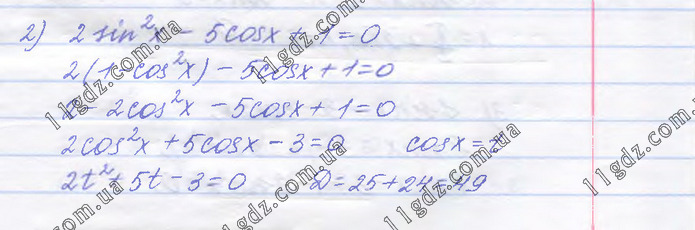 2) 2 sin²x - 5cosx + 1 = 0
2(1-cos²x) - 5cosx + 1 = 0
2 - 2cos²x - 5cosx + 1 = 0
2cos²x + 5cosx - 3 = 0 cosx = t
2t² + 5t - 3 = 0 D = 25 + 24 = 49
11gdz.com.ua
11gdz.com.ua
11gdz.com.ua
11gdz.com.ua
11gdz.com.ua